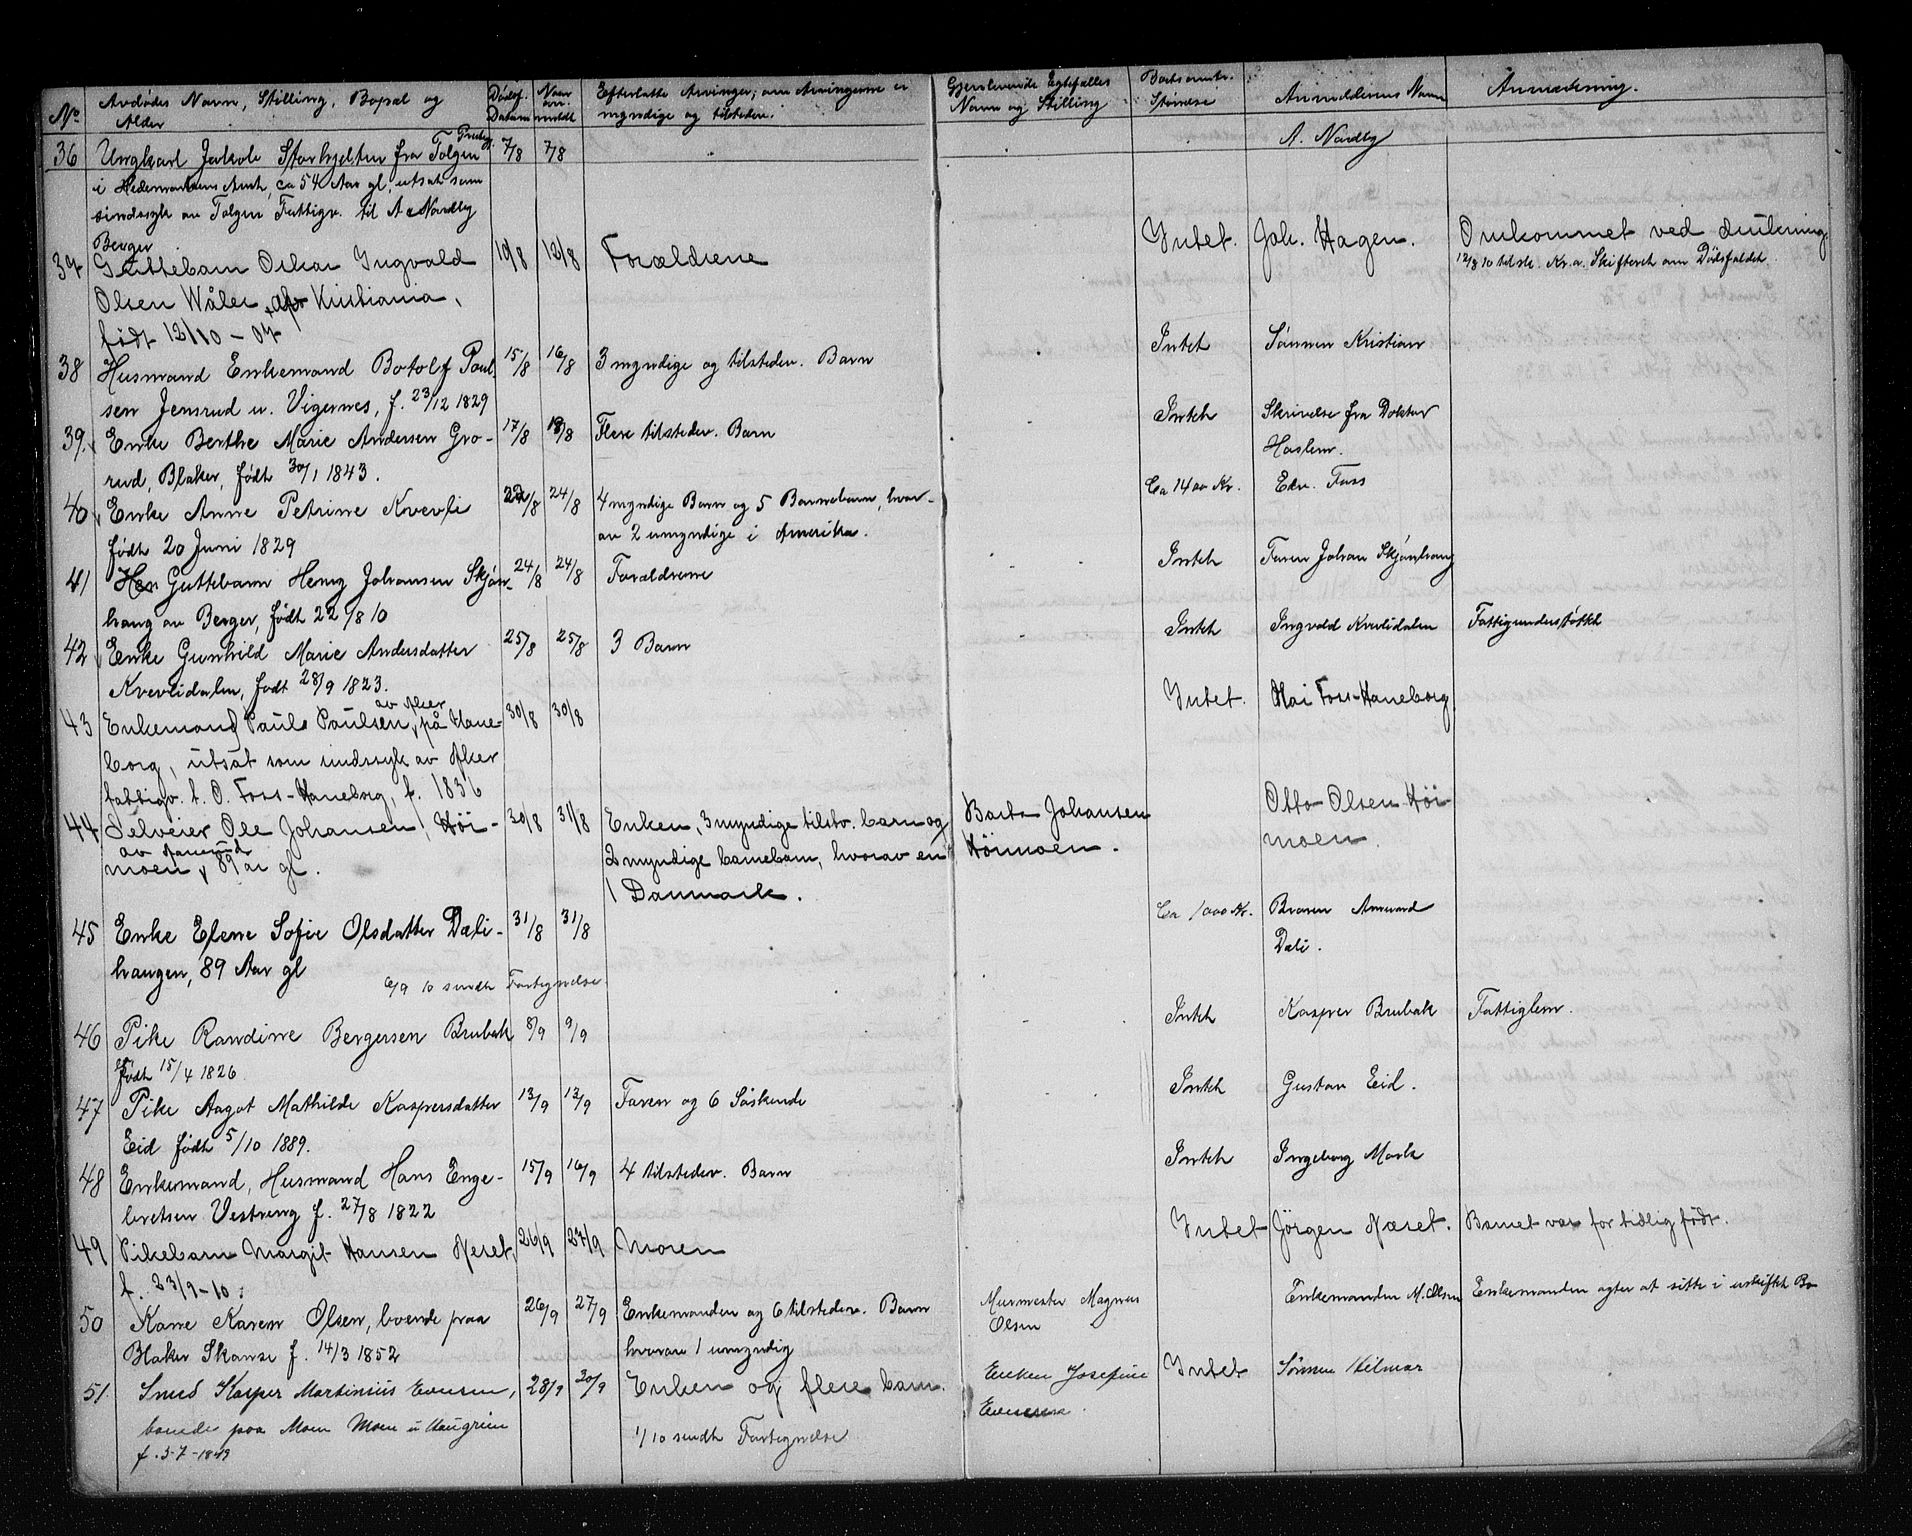 No
Avdødes Navn, Stilling, Bopæl og
Alder
Dødsf.
Datum
Naar
an-
meldt
Efterlatte Arvinger; om Arvingerne er
myndige og tilstede.
Gjenlevende Egtefælles
Navn og Stilling
Størrelse
Anmelderens Navn
Anmerkning.
36 Ungkarl Jakob Storhjelten fra Tolgen Prestegj. 7/8 7/8 A. Nordby
i Hedemarkens Amt, ca 54 Aar gl, utsat som
sindssyk av Tolgen Fattigv. til A. Nordby
Berger
37 Guttebarn Oskar Ingvald 10/8 12/8 Forældrene Intet. Joh. Hagen. Omkommet ved drukning
12/8 10 tilsk. Kr.a. Skifteret om Dødsfaldet.
Olsen Wåler, af Kristiania,
født 12/10 - 07
38 Husmand Enkemand Botolf Poul- 15/8 16/8 3 myndige og tilstedev. Barn Intet Sønnen Kristian
sen Jensrud u. Vigernes, f. 23/12 1829
39. Enke Berthe Marie Andersen Gro- 17/8 18/8 Flere tilstedev. Barn Intet Skrivelse fra Doktor
Haslem.
rud, Blaker, født 30/1 1843.
40 Enke Anne Petrine Kvevli 22/8 24/8 4 myndige Barn og 5 Barnebarn, hvor- Ca 1400 Kr. Edv. Foss
av 2 umyndige i Amerika.
født 20 Juni 1829
41 Guttebarn Henry Johansen Skjøn- 24/8 24/8 Forældrene Intet Faren Johan Skjønhaug
haug av Berger, født 22/8 10
42 Enke Gunhild Marie Andersdatter 25/8 25/8 3 Barn Intet Ingvald Kvevlidalen Fattigunderstøttet
Kvevlidalen, født 28/9 1823.
av Aker
43 Enkemand Pauls Paulsen, på Hane- 30/8 30/8 Intet. Foss-Haneborg
borg, utsat som sindssyk av Aker
fattigv. t. O. Foss-Haneborg, f. 1836
44 Selveier Ole Johansen Høi- 30/8 31/8 Enken, 3 myndige tilstv. barn og Johansen Otto Olsen Høi-
av
moen, 89 år gl. 2 myndige barnebarn, hvorav en Høimoen. moen.
i Danmark.
45 Enke Elene Sofie Olsdatter Dæli- 31/8 31/8 Ca 1000 Kr. Broren Amund
Dæli.
haugen, 89 Aar gl
6/9 10 sendt Fortegnelse.
46 Pike Randine Bergersen Brubak 8/9 9/9 Intet Kasper Brubak Fattiglem.
født 15/4 1826
47 Pike Aagot Mathilde Kaspersdatter 13/9 13/9 Faren og 6 Søskende Intet Gustav Eid.
Eid født 5/10 1889.
48 Enkemand, Husmand Hans Enge- 15/9 16/9 4 tilstedev. Barn Intet Ingeborg Mork
bretsen Vestreng f. 27/8 1822
49 Pikebarn Margit Hansen Neset, 26/9 27/9 Moren Intet Jørgen Næset. Barnet var for tidlig født.
f. 23/9-10.
50 Kone Karen Olsen, boende paa 26/9 27/9 Enkemanden og 6 tilstedev. Barn Murmester Magnus Enkemanden M. Olsen Enkemanden agter at sitte i uskiftet Bo
Olsen
Blaker Skanse f. 14/3 1852 hvorav 1 umyndig
51 Smed Kasper Martinius Evensen, 28/9 30/9 Enken og flere barn. Enken Josefine Intet Sønnen Hilmar
Evensen.
boende paa Moen u Haugrim 1/10 sendt Fortegnelse
f. 3-7-1849